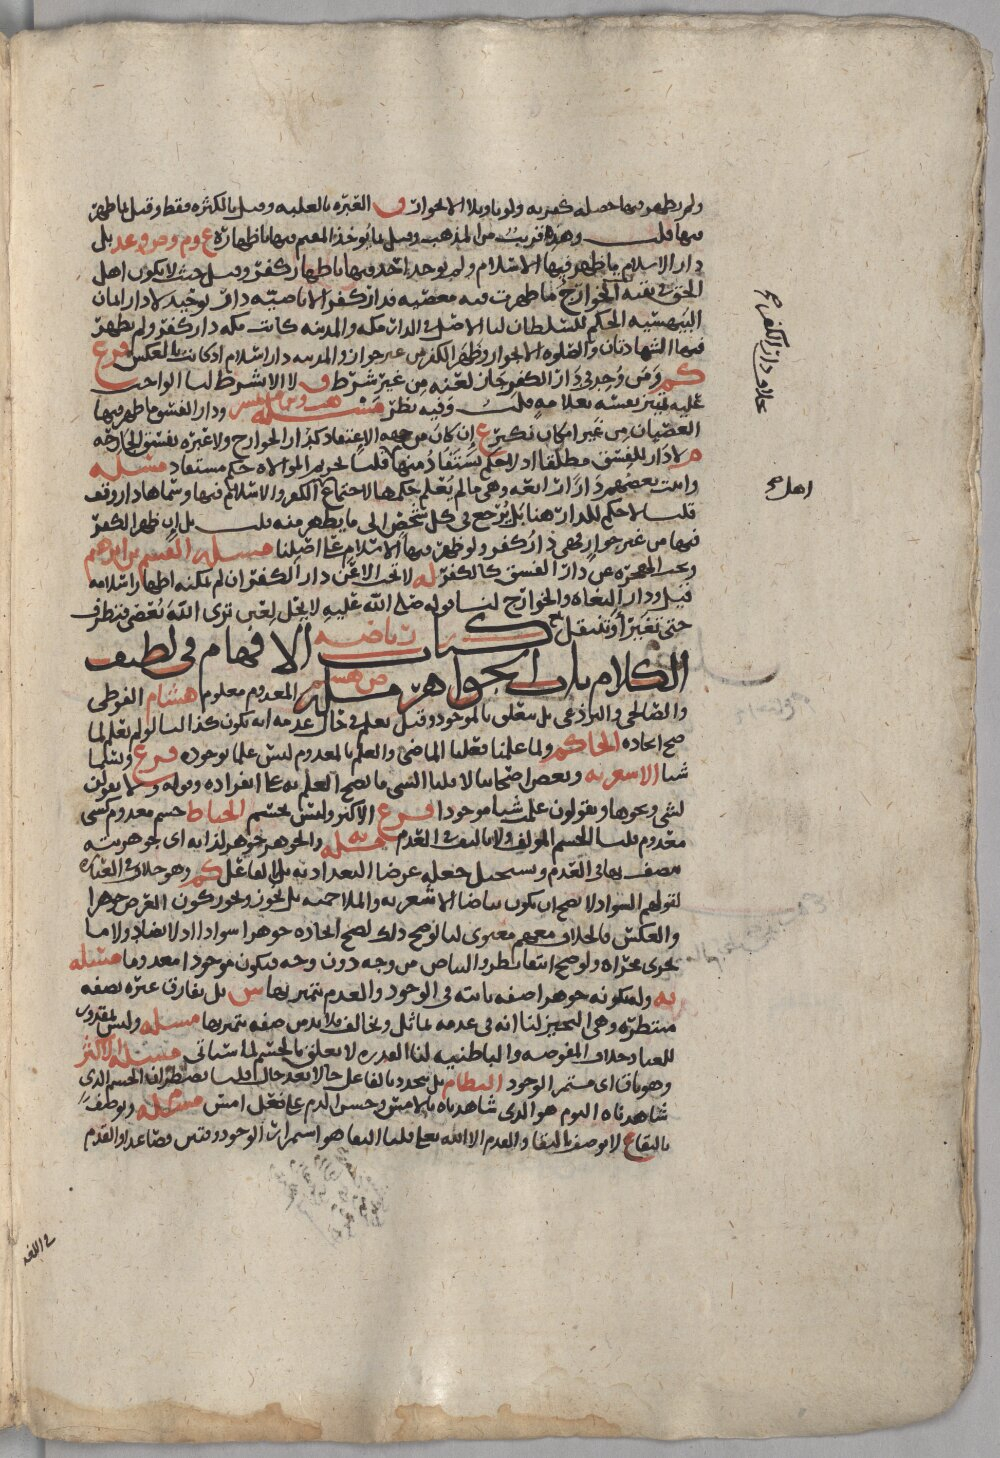 ولم يظهر فيها خصلة كفرية ولو تاويلا الا بجوار ق العبرة بالغلبة وقيل بالكثرة فقط وقيل ما ظهر
فيها قلت وهذه قريب من المذهب وقيل ما يؤخذ المقيم فيها باظهاره ع وم وص وعد بل
دار الاسلام ما ظهر فيها الاسلام ولم يوجد احد فيها باظهار كفر وقيل حيث لا يكون اهل
الحق في تقية الخوارج ما ظهرت فيه معصية فدار كفر الاباضية دار توحيد لا دار ايمان
البيهسية الحكم للسلطان لنا الاصل في الدار مكة والمدينة كانت مكة دار كفر ولم يظهر
فيها الشهادتان والصلوة الا بجوار وظهر الكفر من غير جوار والمدينة دار اسلام اذ كانت بالعكس فرع
كم ومن وجد في دار الكفر جاز لعنه من غير شرط ق لا الا بشرط لنا الواجب
عليه تمييز نفسه بعلامة قلت وفيه نظر مسئلة ودار الفسق ما ظهر فيها
العصيان من غير امكان نكير ع ان كان من جهة الاعتقاد كدار الخوارج ولا غيره بفسق الجارحة
م لا دار للفسق مطلقا اذ لا حكم يستفاد منها قلنا تحريم الموالاة حكم مستفاد مسئلة
واثبت بعضهم دارا رابعة وهي ما لم يعلم حكمها لاجتماع الكفر والاسلام فيها وسماها دار وقف
قلت لا حكم للدار هنا بل يرجع في كل شخص الى ما يظهر منه قلت بل ان ظهر الكفر
فيها من غير جوار فهي دار كفر ولو ظهر فيها الاسلام على اصلنا مسئلة القسم بن ابرهيم
وتجب الهجرة عن دار الفسق كالكفر له لا تجب الا عن دار الكفر ان لم يمكنه اظهار اسلامه
قيل ودار البغاة والخوارج لنا قوله صلى الله عليه لا يحل لعين ترى الله يعصى فتطرف
حتى تغير او تنتقل كتاب رياضة الافهام في لطيف
الكلام باب الجواهر مسئلة المعدوم معلوم هشام الفوطي
والصالحي والبرذعي بل يتعلق بالموجود وقيل يعلم في حال عدمه انه يكون كذا لنا لو لم يعلم لما
صح ايجاده الحاكم ولما علمنا فعلنا الماضي والعلم بالمعدوم ليس علما بوجوده فرع ويسما
شيا الاشعرية وبعض اصحابنا لا قلنا الشي ما يصح العلم به على انفراده وقوله ولا تقولن
لشي ونحوها ويقولون علمت شيا موجودا فرع الاكثر وليس بجسم الخياط جسم معدوم كشي
معدوم قلنا الجسم المؤلف ولا تاليف في العدم مسئلة والجوهر جوهر لذاته اي جوهريته
يتصف بها في العدم ويستحيل جعله عرضا البغدادية بل بالفاعل كم وهو خلاف في العبارة
لقولهم السواد لا يصح ان يكون بياضا الاشعرية والملاحمية بل يجوز ويجوز كون العرض جوهرا
والعكس فالخلاف معهم معنوي لنا لو صح ذلك لصح ايجاده جوهرا سوادا اذ لا تضاد ولا ما
يجري مجراه ولو صح انتفا بطرو البياض من وجه دون وجه فيكون موجودا معدوما مسئلة
ية ولكونه جوهرا صفة ثابتة في الوجود والعدم يتميز بها س بل يفارق غيره بصفة
منتظرة وهي التحيز لنا انه في عدمه يماثل ويخالف فلا بد من صفة يتميز بها مسئلة وليس بمقدور
للعباد خلاف المفوضة والباطنية لنا القدرة لا تعلق بالجسم لما سياتي مسئلة الاكثر
وهو باق اي مستمر الوجود النظام بل يتجدد بالفاعل حالا بعد حال قلنا نضطر ان الجسم الذي
شاهدناه اليوم هو الذي شاهدناه بالامس وحسن الذم على فعل امس مسئلة ويوصف
بالبقا ع لا يوصف بالبقا والقدم الا الله تعالى قلنا البقا هو استمرار الوجود وقتين فصاعدا والقدم
خلاف دار الكفر صح
اهل صح
في اللغة